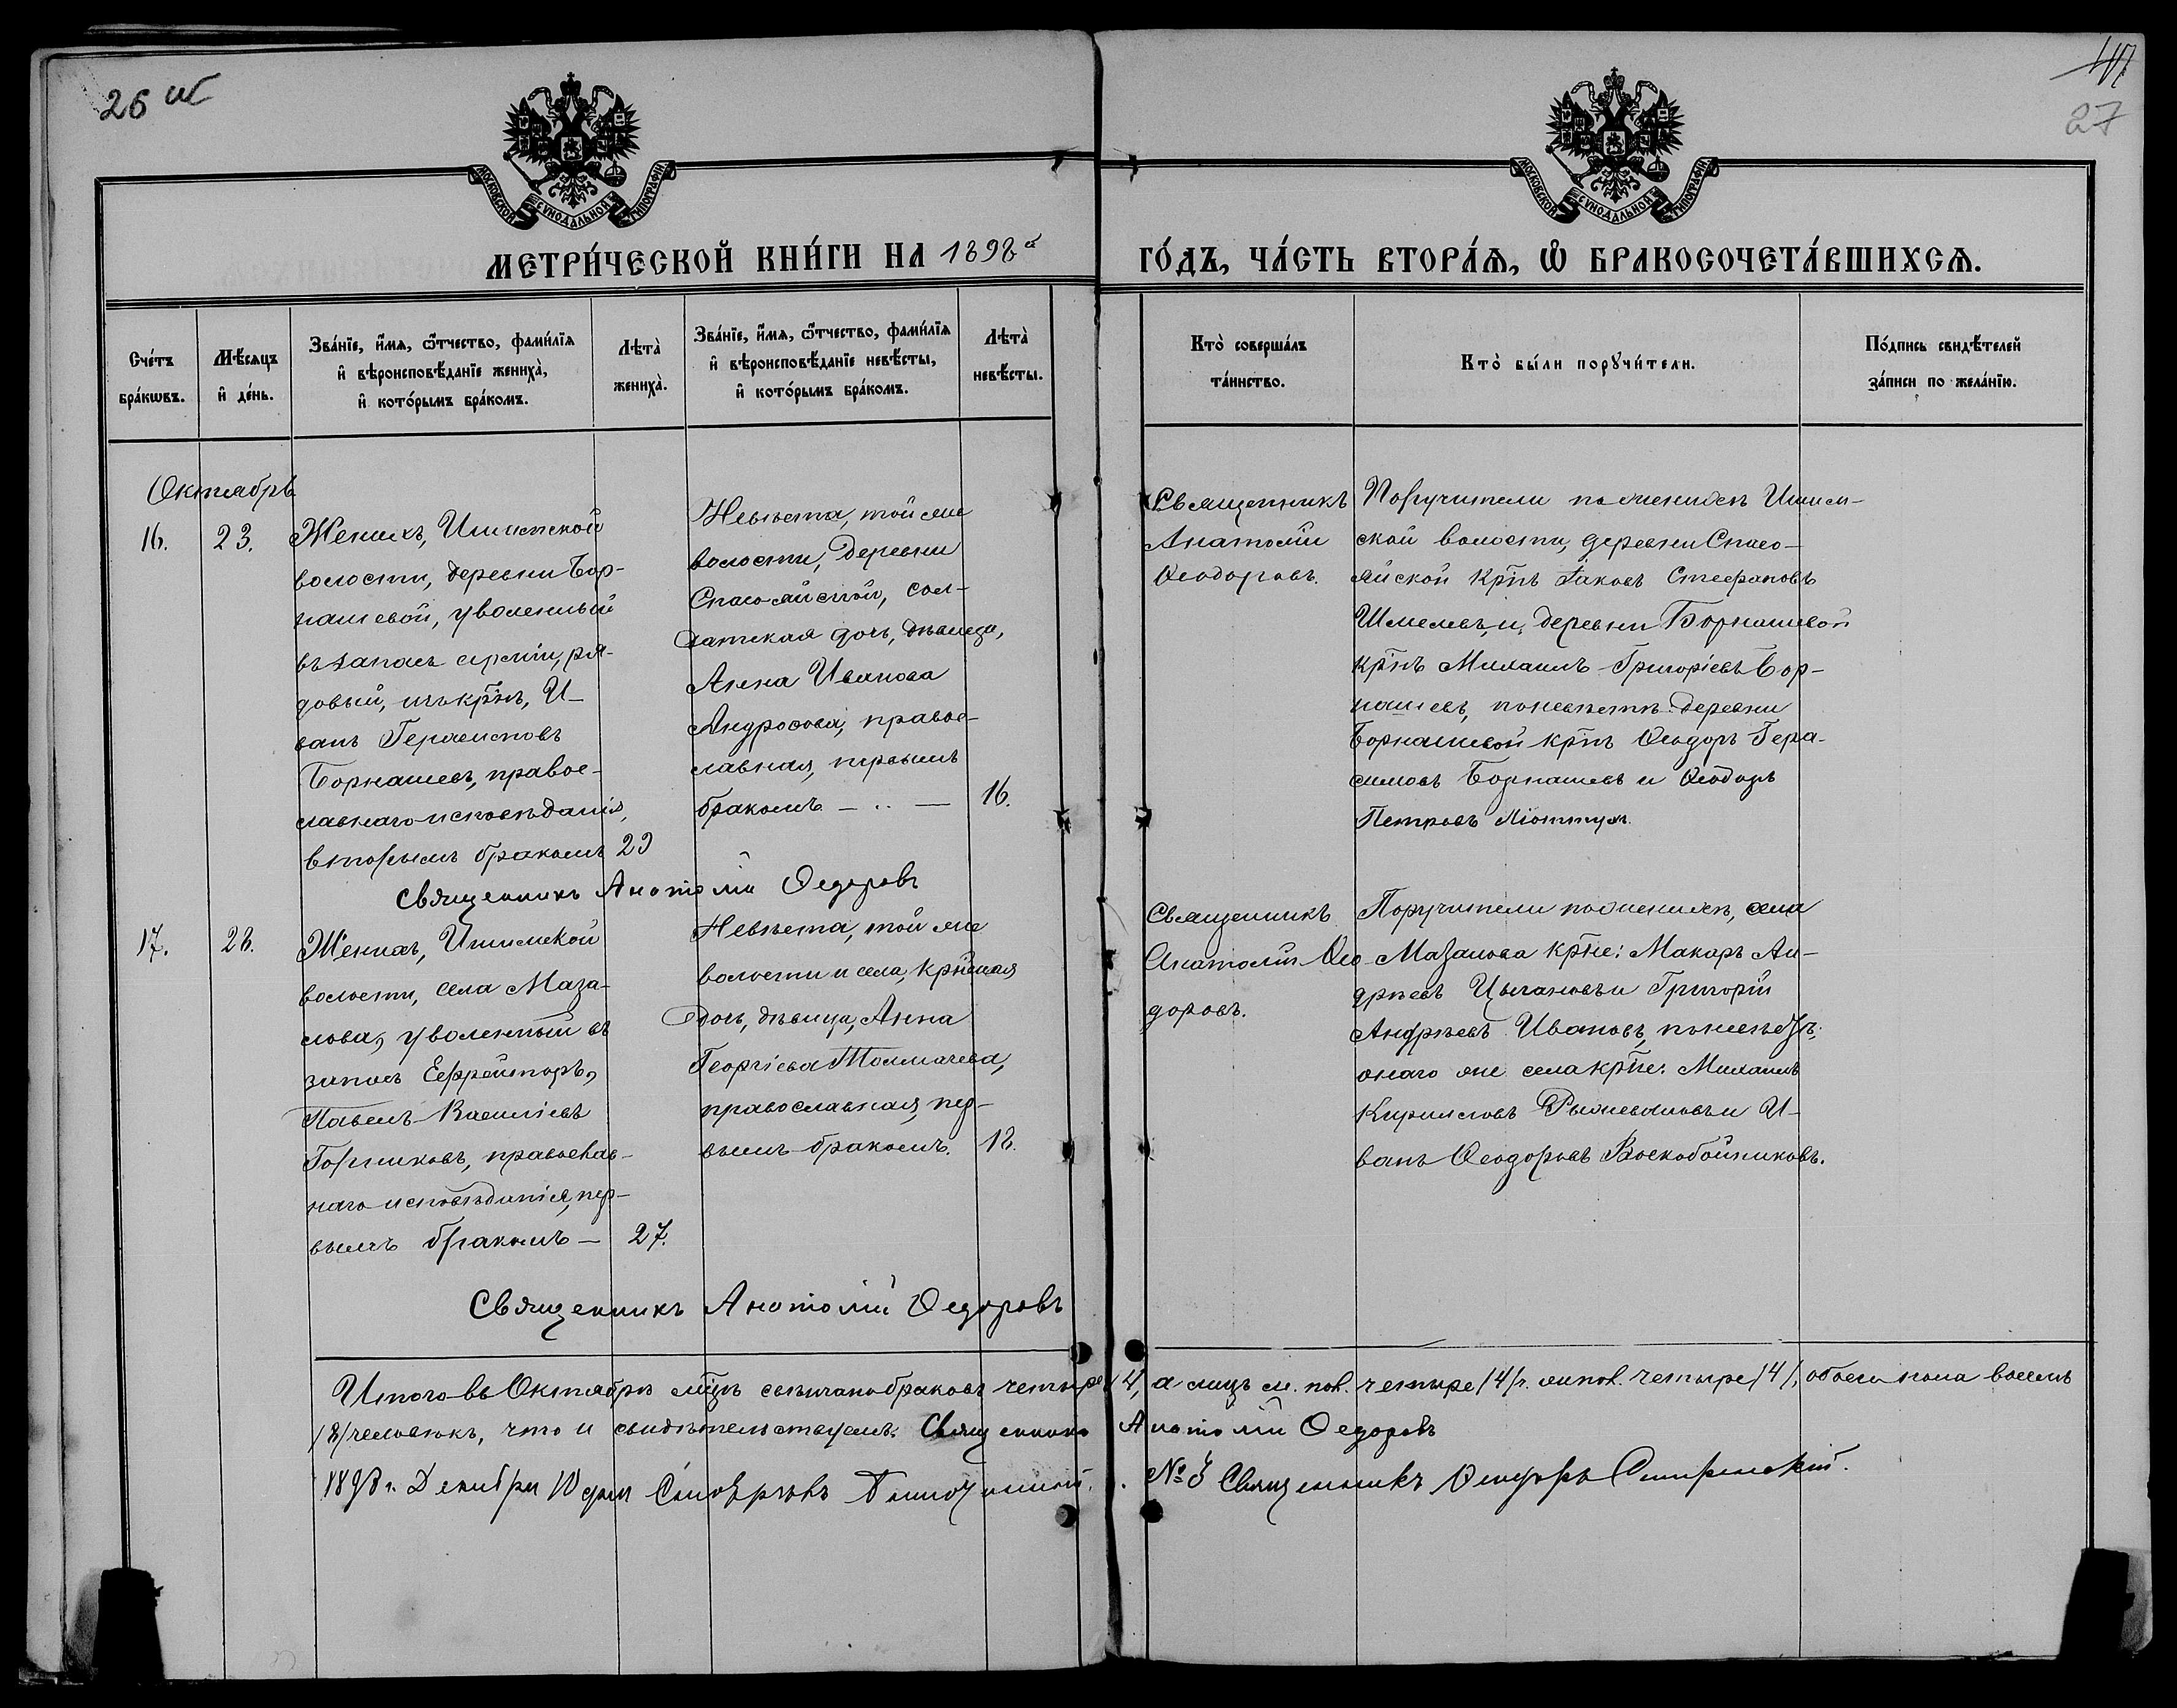 26 об
117
27
МОСКОВСКОЙ СѴНОДАЛЬНОЙ ТИПОГРАФІИ
МОСКОВСКОЙ СѴНОДАЛЬНОЙ ТИПОГРАФІИ
МЕТРИ́ЧЕСКОЙ КНИ́ГИ НА 1898й
ГО́ДЪ, ЧА́СТЬ ВТОРА́Ѧ, Ѽ БРАКОСОЧЕТА́ВШИХСѦ.
Сче́тъ бра́кѡвъ.
Мѣ́сяцъ и҆ де́нь.
Зва́нїе, и҆́мѧ, ѻ҆́тчество, фами́лїѧ и҆ вѣроисповѣ́данїе жениха̀, и҆ кото́рымъ бра́комъ.
Лѣта̀ жениха̀.
Зва́нїе, и҆́мѧ, ѻ҆́тчество, фами́лїѧ и҆ вѣроисповѣ́данїе невѣ́сты, и҆ кото́рымъ бра́комъ.
Лѣта̀ невѣ́сты.
Кто̀ соверша́лъ та́инство.
Кто̀ бы́ли порꙋчи́тели.
По́дпись свидѣ́телей за́писи по жела́нїю.
Октябрь
16.
23.
Женихъ, Ишимской
волости, деревни Бор-
нашевой, уволенный
въ запасъ арміи, ря-
довый, изъ крн̃ъ, И-
ванъ Герасимовъ
Борнашевъ, правос-
лавнаго исповѣданія,
вторымъ бракомъ
29
Невѣста, той же
волости, деревни
Спасо-яйской, сол-
датская дочь, дѣвица,
Анна Иванова
Андросова, правос-
лавная, первымъ
бракомъ —
16.
Священникъ
Анатолій
Ѳеодоровъ.
Поручители по женихѣ Ишим-
ской волости, деревни Спасо-
яйской крн̃ъ Іаковъ Стефановъ
Шмелевъ, и деревни Борнашевой
крн̃ъ Михаилъ Григоріевъ Бор-
нашевъ, по невѣстѣ деревни
Борнашевой крн̃ъ Ѳеодоръ Гера-
симовъ Борнашевъ и Ѳеодоръ
Петровъ
Священникъ Анатолій Ѳедоровъ
17.
28.
Женихъ, Ишимской
волости, села Маза-
лова, уволенный въ
запасъ Ефрейторъ,
Павелъ Василіевъ
Горшковъ, православ-
наго исповѣданія, пер-
вымъ бракомъ —
27.
Невѣста, той же
волости и села, крн̃ская
дочь, дѣвица, Анна
Георгіева Толмачева,
православная, пер-
вымъ бракомъ.
18.
Священникъ
Анатолій Ѳео-
доровъ.
Поручители по женихѣ, села
Мазалова крн̃е: Макаръ Ан-
дреевъ Цыгановъ и Григорій
Андреевъ Ивановъ, по невѣстѣ:
онаго же села крн̃е: Михаилъ
Кирилловъ и И-
ванъ Ѳеодоровъ Воскобойниковъ.
Священникъ Анатолій Ѳедоровъ
Итого въ Октябрѣ м̃цѣ свѣнчано браковъ четыре /4/, а лицъ м. пол. четыре /4/ ч. жен. пол. четыре /4/, обоего пола восемь
/8/ человѣкъ, что и свидѣтельствуемъ. Священникъ Анатолій Ѳедоровъ
1898 г. Декабря 10 дня Смотрѣвъ Благочинный. № 3 Священникъ Ѳеодоръ Смиренскій.